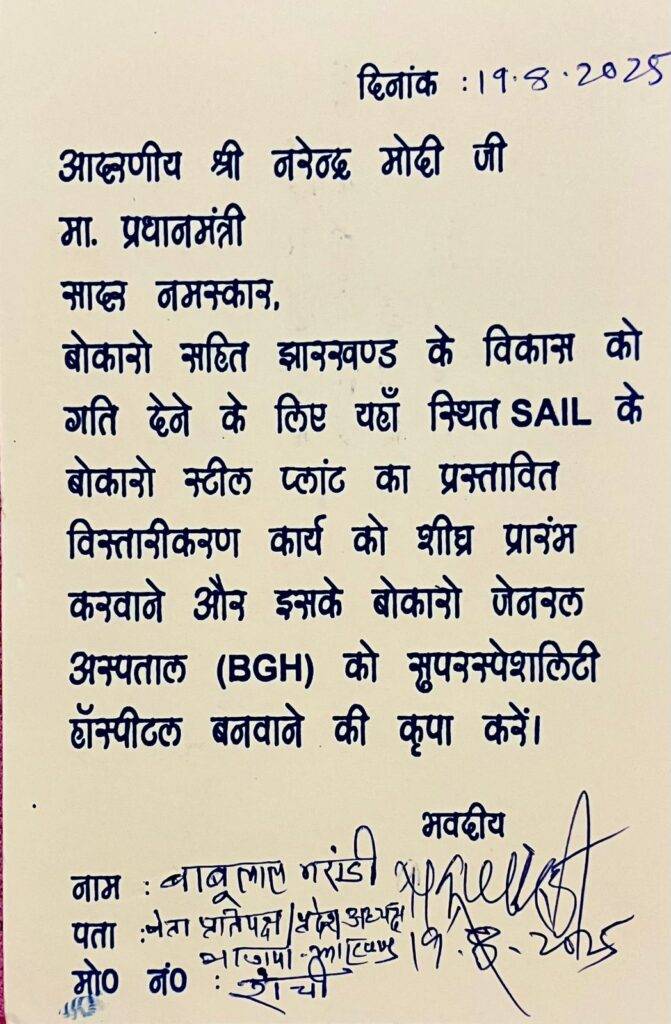 दिनांक : 19.8.2025
आदरणीय श्री नरेन्द्र मोदी जी
मा. प्रधानमंत्री
सादर नमस्कार,
बोकारो सहित झारखण्ड के विकास को
गति देने के लिए यहाँ स्थित SAIL के
बोकारो स्टील प्लांट का प्रस्तावित
विस्तारीकरण कार्य को शीघ्र प्रारंभ
करवाने और इसके बोकारो जेनरल
अस्पताल (BGH) को सुपरस्पेशलिटी
हॉस्पीटल बनवाने की कृपा करें।
भवदीय
नाम : बाबूलाल मरांडी
पता : नेता प्रतिपक्ष/प्रदेश अध्यक्ष
भाजपा-झारखण्ड 19.8.2025
मो0 नं0 : राँची